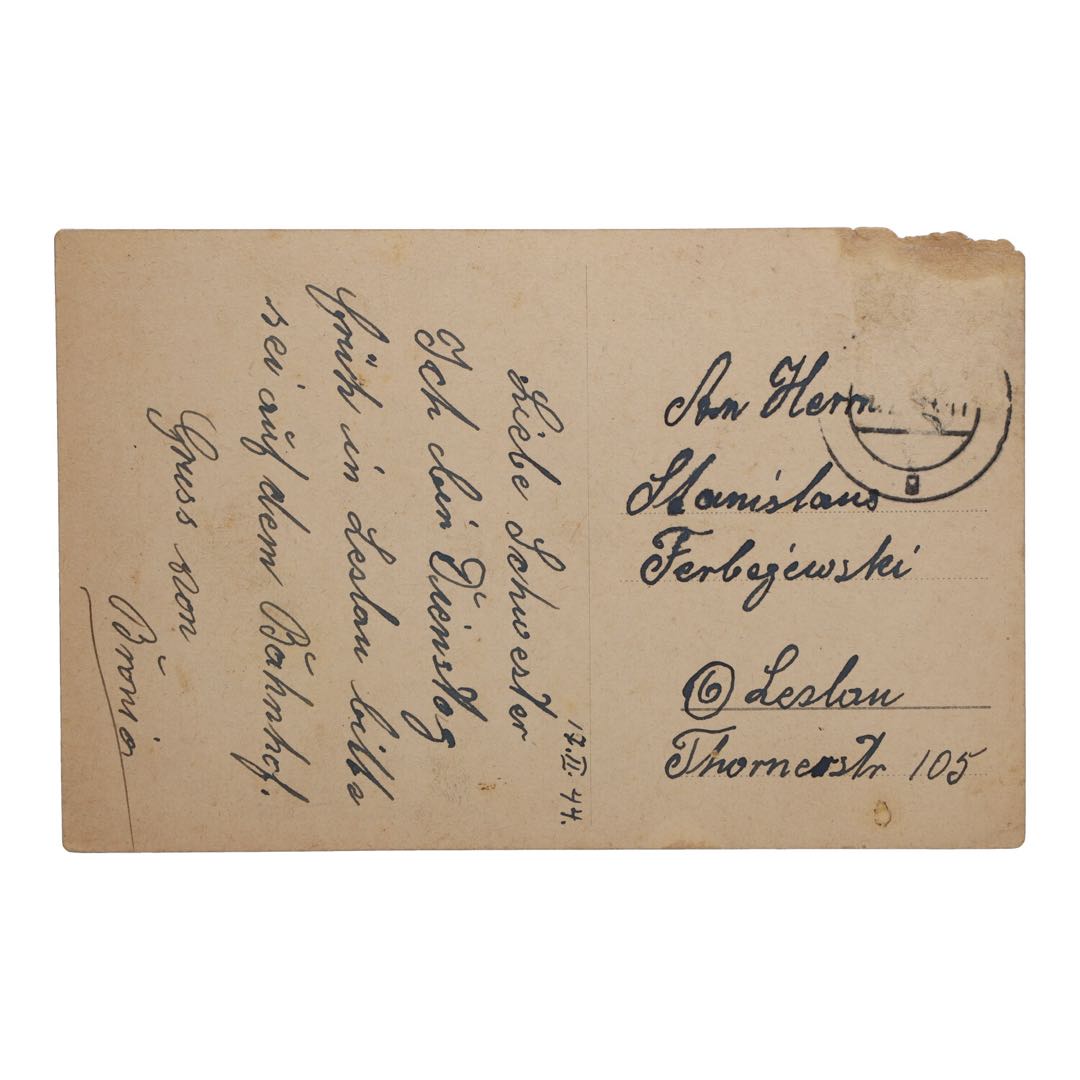 17.II.44.
Liebe Schwester
Ich bin Dienstag
früh in Leslau bitte
sei auf dem Bahnhof.
Gruss von
Bronia
An Herrn
Stanislaus
Ferbejewski
6 Leslau
Thornerstr 105